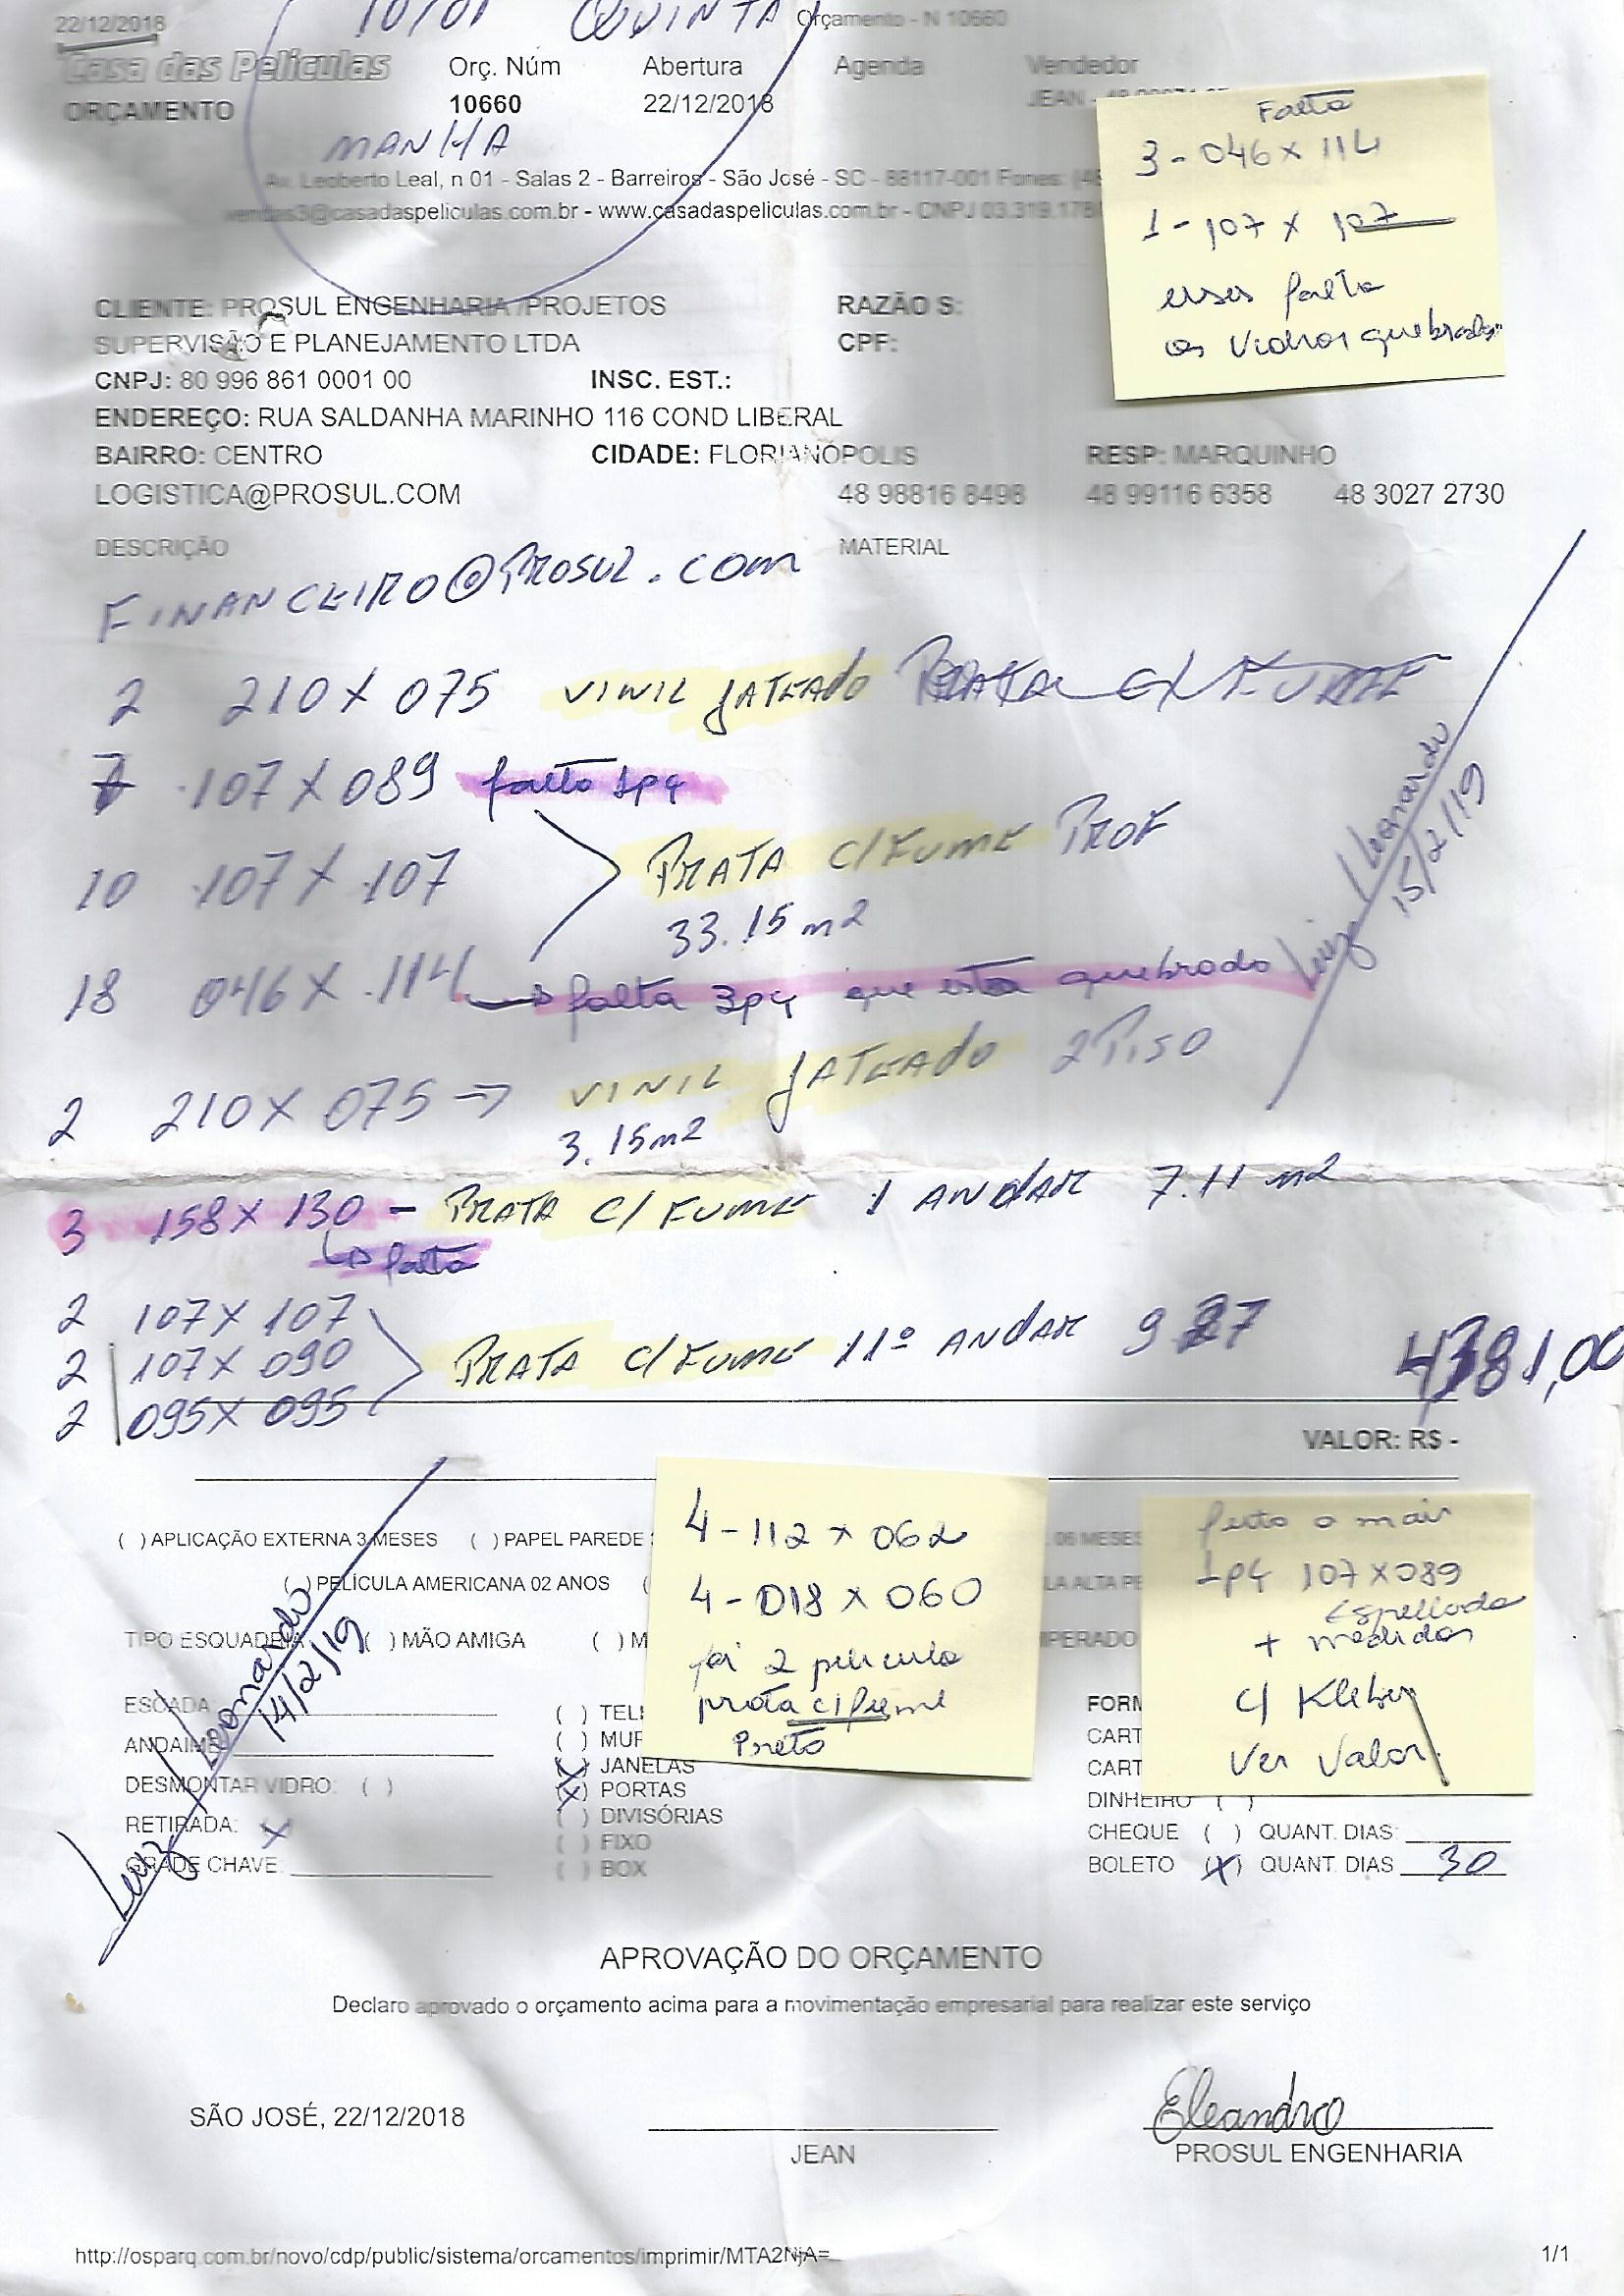 22/12/2018
10/01 QUINTA
Orçamento - N 10660
Casa das Películas
Orç. Núm
Abertura
Agenda
Vendedor
ORÇAMENTO
10660
22/12/2018
JEAN - 48
MANHA
Av. Leoberto Leal, n 01 - Salas 2 - Barreiros - São José - SC - 88117-001 Fones: (48
vendas3@casadaspeliculas.com.br - www.casadaspeliculas.com.br - CNPJ 03.319.178
Falta
3 - 046 x 114
1 - 107 x 107
esses falta
os vidros quebrados
CLIENTE: PROSUL ENGENHARIA /PROJETOS
SUPERVISÃO E PLANEJAMENTO LTDA
RAZÃO S:
CPF:
CNPJ: 80 996 861 0001 00
INSC. EST.:
ENDEREÇO: RUA SALDANHA MARINHO 116 COND LIBERAL
BAIRRO: CENTRO
CIDADE: FLORIANÓPOLIS
RESP: MARQUINHO
LOGISTICA@PROSUL.COM
48 98816 8498
48 99116 6358
48 3027 2730
DESCRIÇÃO
MATERIAL
FINANCEIRO@PROSUL.COM
2 210 X 075 VINIL JATEADO
7 107 X 089 falto 1pç
10 107 X 107
PRATA C/FUME PROF
33.15 m2
18 046 X 114 falta 3pç que esta quebrado
Luiz / Leonardo
15/2/19
2 210 X 075 => VINIL JATEADO 2 PISO
3.15 m2
3 158 X 130 - PRATA C/FUME 1 ANDAR 7.11 m2
falta
2 107 X 107
2 107 X 090
2 095 X 095
PRATA C/FUME 11º ANDAR
4381,00
VALOR: R$ -
( ) APLICAÇÃO EXTERNA 3 MESES ( ) PAPEL PAREDE
06 MESES
( ) PELÍCULA AMERICANA 02 ANOS (
LA ALTA PE
TIPO ESQUADRIA: ( ) MÃO AMIGA ( ) M
MPERADO
4 - 112 x 062
4 - 018 x 060
foi 2 pelicula
prata c/fume
Preto
feito a mais
1pç 107 x 089
Espellada
+ medidas
c/ Kleber
Ver Valor
Luiz / Leonardo
14/2/19
ESCADA:
ANDAIME:
DESMONTAR VIDRO: ( )
RETIRADA: X
GRADE CHAVE:
( ) TEL
( ) MUR
(X) JANELAS
(X) PORTAS
( ) DIVISÓRIAS
( ) FIXO
( ) BOX
FORM
CART
CART
DINHEIRO ( )
CHEQUE ( ) QUANT. DIAS:
BOLETO (X) QUANT. DIAS 30
APROVAÇÃO DO ORÇAMENTO
Declaro aprovado o orçamento acima para a movimentação empresarial para realizar este serviço
SÃO JOSÉ, 22/12/2018
Eleandro
JEAN
PROSUL ENGENHARIA
http://osparq.com.br/novo/cdp/public/sistema/orcamentos/imprimir/MTA2NjA=
1/1